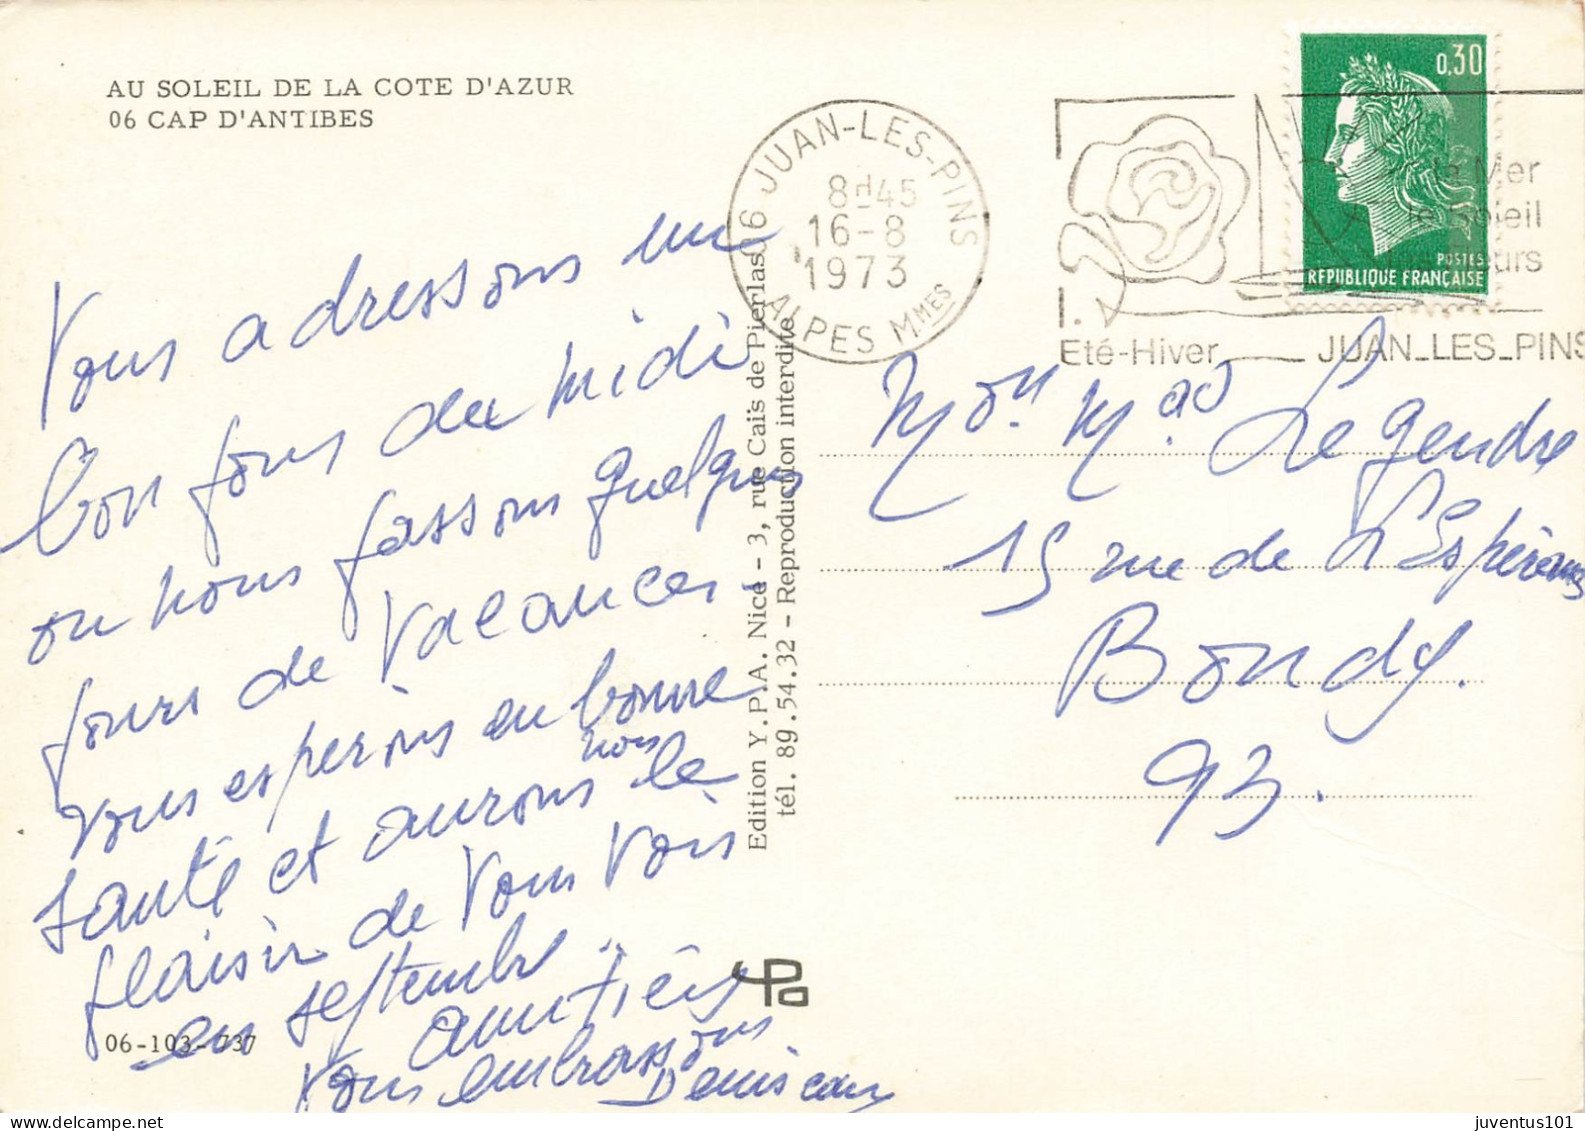 AU SOLEIL DE LA COTE D'AZUR
06 CAP D'ANTIBES
Vous adressons un
bon jous du midi
ou nous passons quelques
jours de vacances.
Vous esperons en bonne
santé et aurons nous le
plaisir de vous voir
en septembre
amitiés
vous embrassons
06-103-737
Edition Y.P.A. Nice - 3, rue Caïs de Pierlas
tél. 89.54.32 - Reproduction interdite
06 JUAN-LES-PINS
8H45
16-8
1973
ALPES MMES
la Mer
le Soleil
Eté-Hiver
JUAN_LES_PINS
0,30
POSTES
REPUBLIQUE FRANÇAISE
Mon Mad Legendre
15 rue de L'Espérance
Bondy.
93.
juventus101